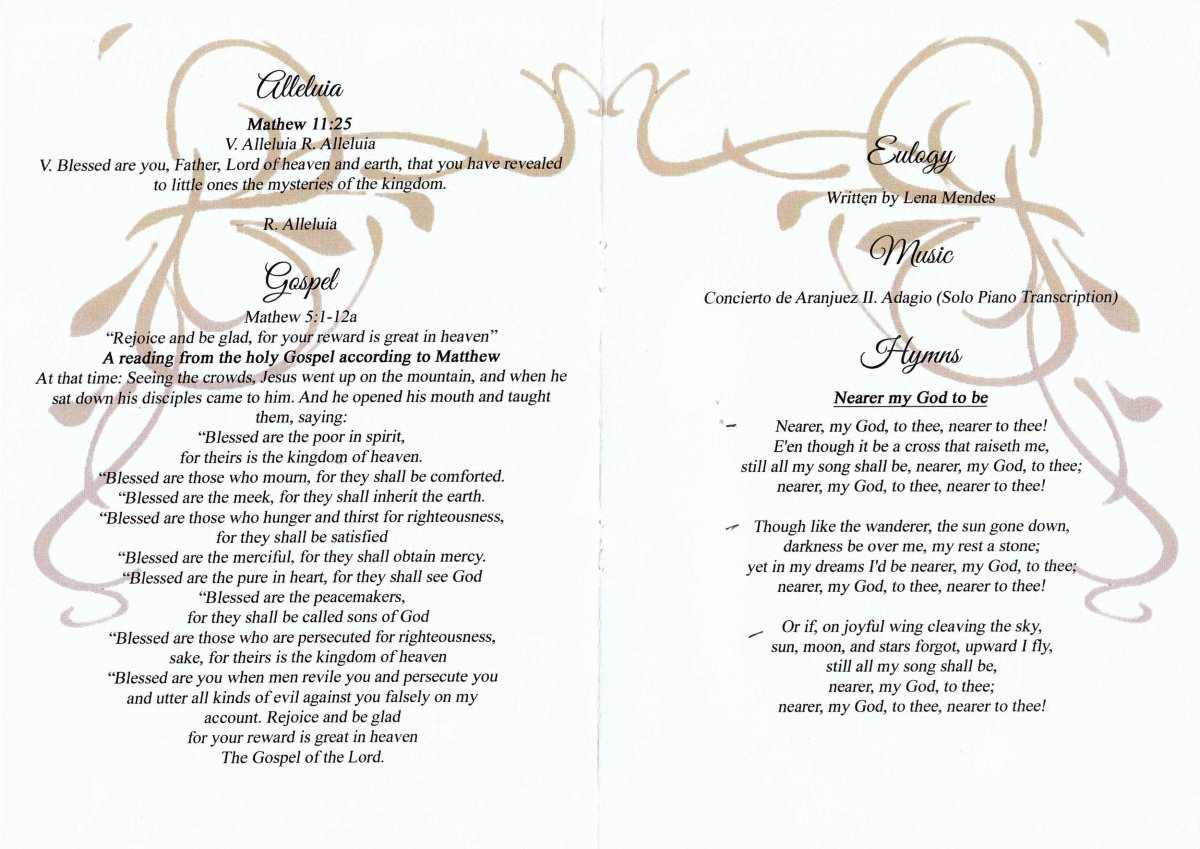 Alleluia
Mathew 11:25
V. Alleluia R. Alleluia
V. Blessed are you, Father, Lord of heaven and earth, that you have revealed
to little ones the mysteries of the kingdom.
R. Alleluia
Gospel
Mathew 5:1-12a
“Rejoice and be glad, for your reward is great in heaven”
A reading from the holy Gospel according to Matthew
At that time: Seeing the crowds, Jesus went up on the mountain, and when he
sat down his disciples came to him. And he opened his mouth and taught
them, saying:
“Blessed are the poor in spirit,
for theirs is the kingdom of heaven.
“Blessed are those who mourn, for they shall be comforted.
“Blessed are the meek, for they shall inherit the earth.
“Blessed are those who hunger and thirst for righteousness,
for they shall be satisfied
“Blessed are the merciful, for they shall obtain mercy.
“Blessed are the pure in heart, for they shall see God
“Blessed are the peacemakers,
for they shall be called sons of God
“Blessed are those who are persecuted for righteousness,
sake, for theirs is the kingdom of heaven
“Blessed are you when men revile you and persecute you
and utter all kinds of evil against you falsely on my
account. Rejoice and be glad
for your reward is great in heaven
The Gospel of the Lord.
Eulogy
Written by Lena Mendes
Music
Concierto de Aranjuez II. Adagio (Solo Piano Transcription)
Hymns
Nearer my God to be
Nearer, my God, to thee, nearer to thee!
E'en though it be a cross that raiseth me,
still all my song shall be, nearer, my God, to thee;
nearer, my God, to thee, nearer to thee!
Though like the wanderer, the sun gone down,
darkness be over me, my rest a stone;
yet in my dreams I'd be nearer, my God, to thee;
nearer, my God, to thee, nearer to thee!
Or if, on joyful wing cleaving the sky,
sun, moon, and stars forgot, upward I fly,
still all my song shall be,
nearer, my God, to thee;
nearer, my God, to thee, nearer to thee!